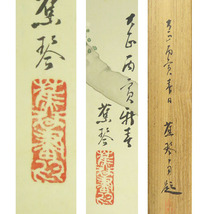 蕉琴
大正丙寅新春
蕉琴
大正丙寅春日 蕉琴自題